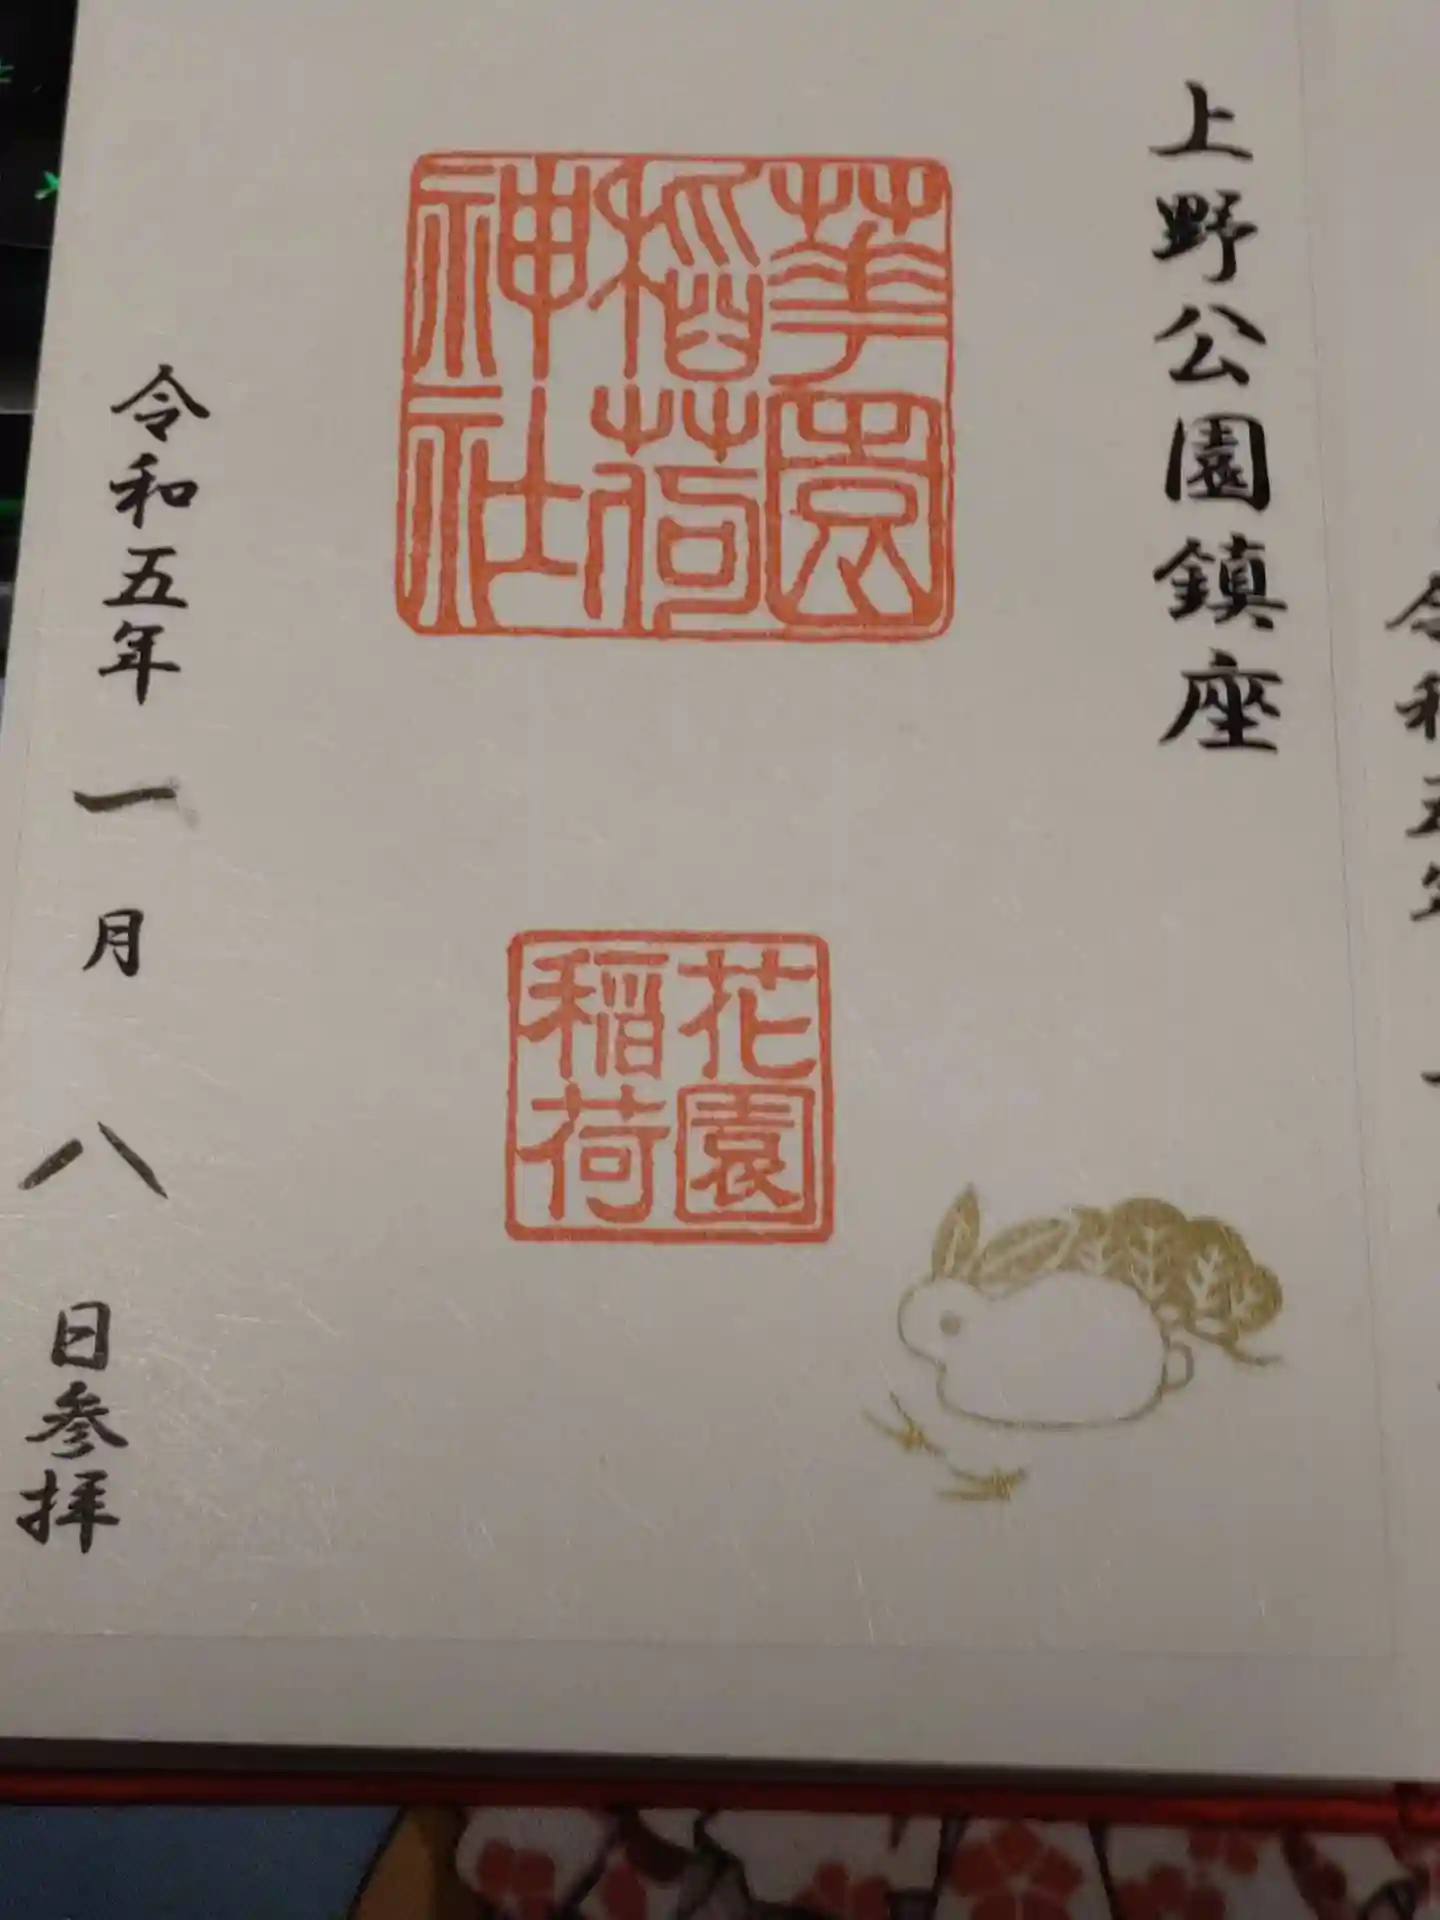 上野公園鎮座
華園
稲荷
神社
花園
稲荷
令和五年一月八日参拝